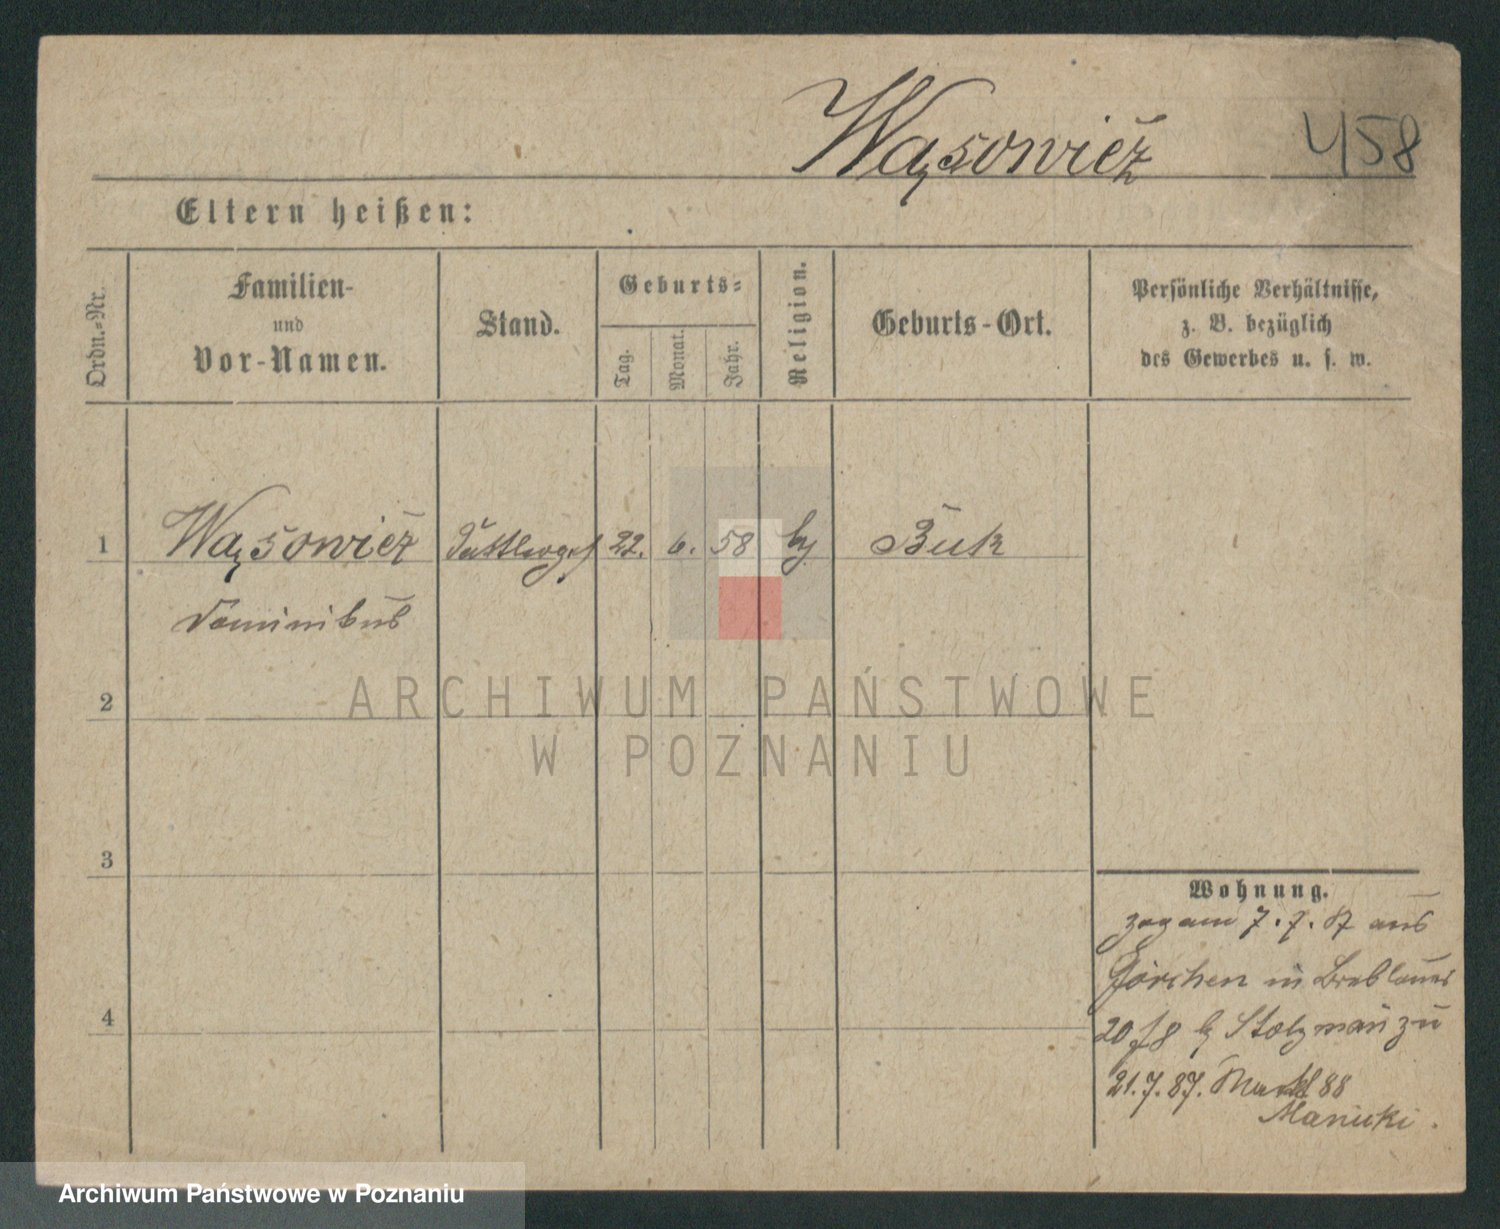 Wąsowicz 458
Eltern heißen:
Ordn.-Nr.
Familien-
und
Vor-Namen.
Stand.
Geburts-
Tag.
Monat.
Jahr.
Religion.
Geburts-Ort.
Persönliche Verhältnisse,
z. B. bezüglich
des Gewerbes u. s. w.
1 Wąsowicz Sattlerges 22. 6. 58 Buk
Dominikus
2
3
4
Wohnung.
zog am 7. 7. 87 aus
Görchen in Breslauer
20 Stolzmann zu
21. 7. 87. Markt 88
Manicki.
ARCHIWUM PAŃSTWOWE
W POZNANIU
Archiwum Państwowe w Poznaniu